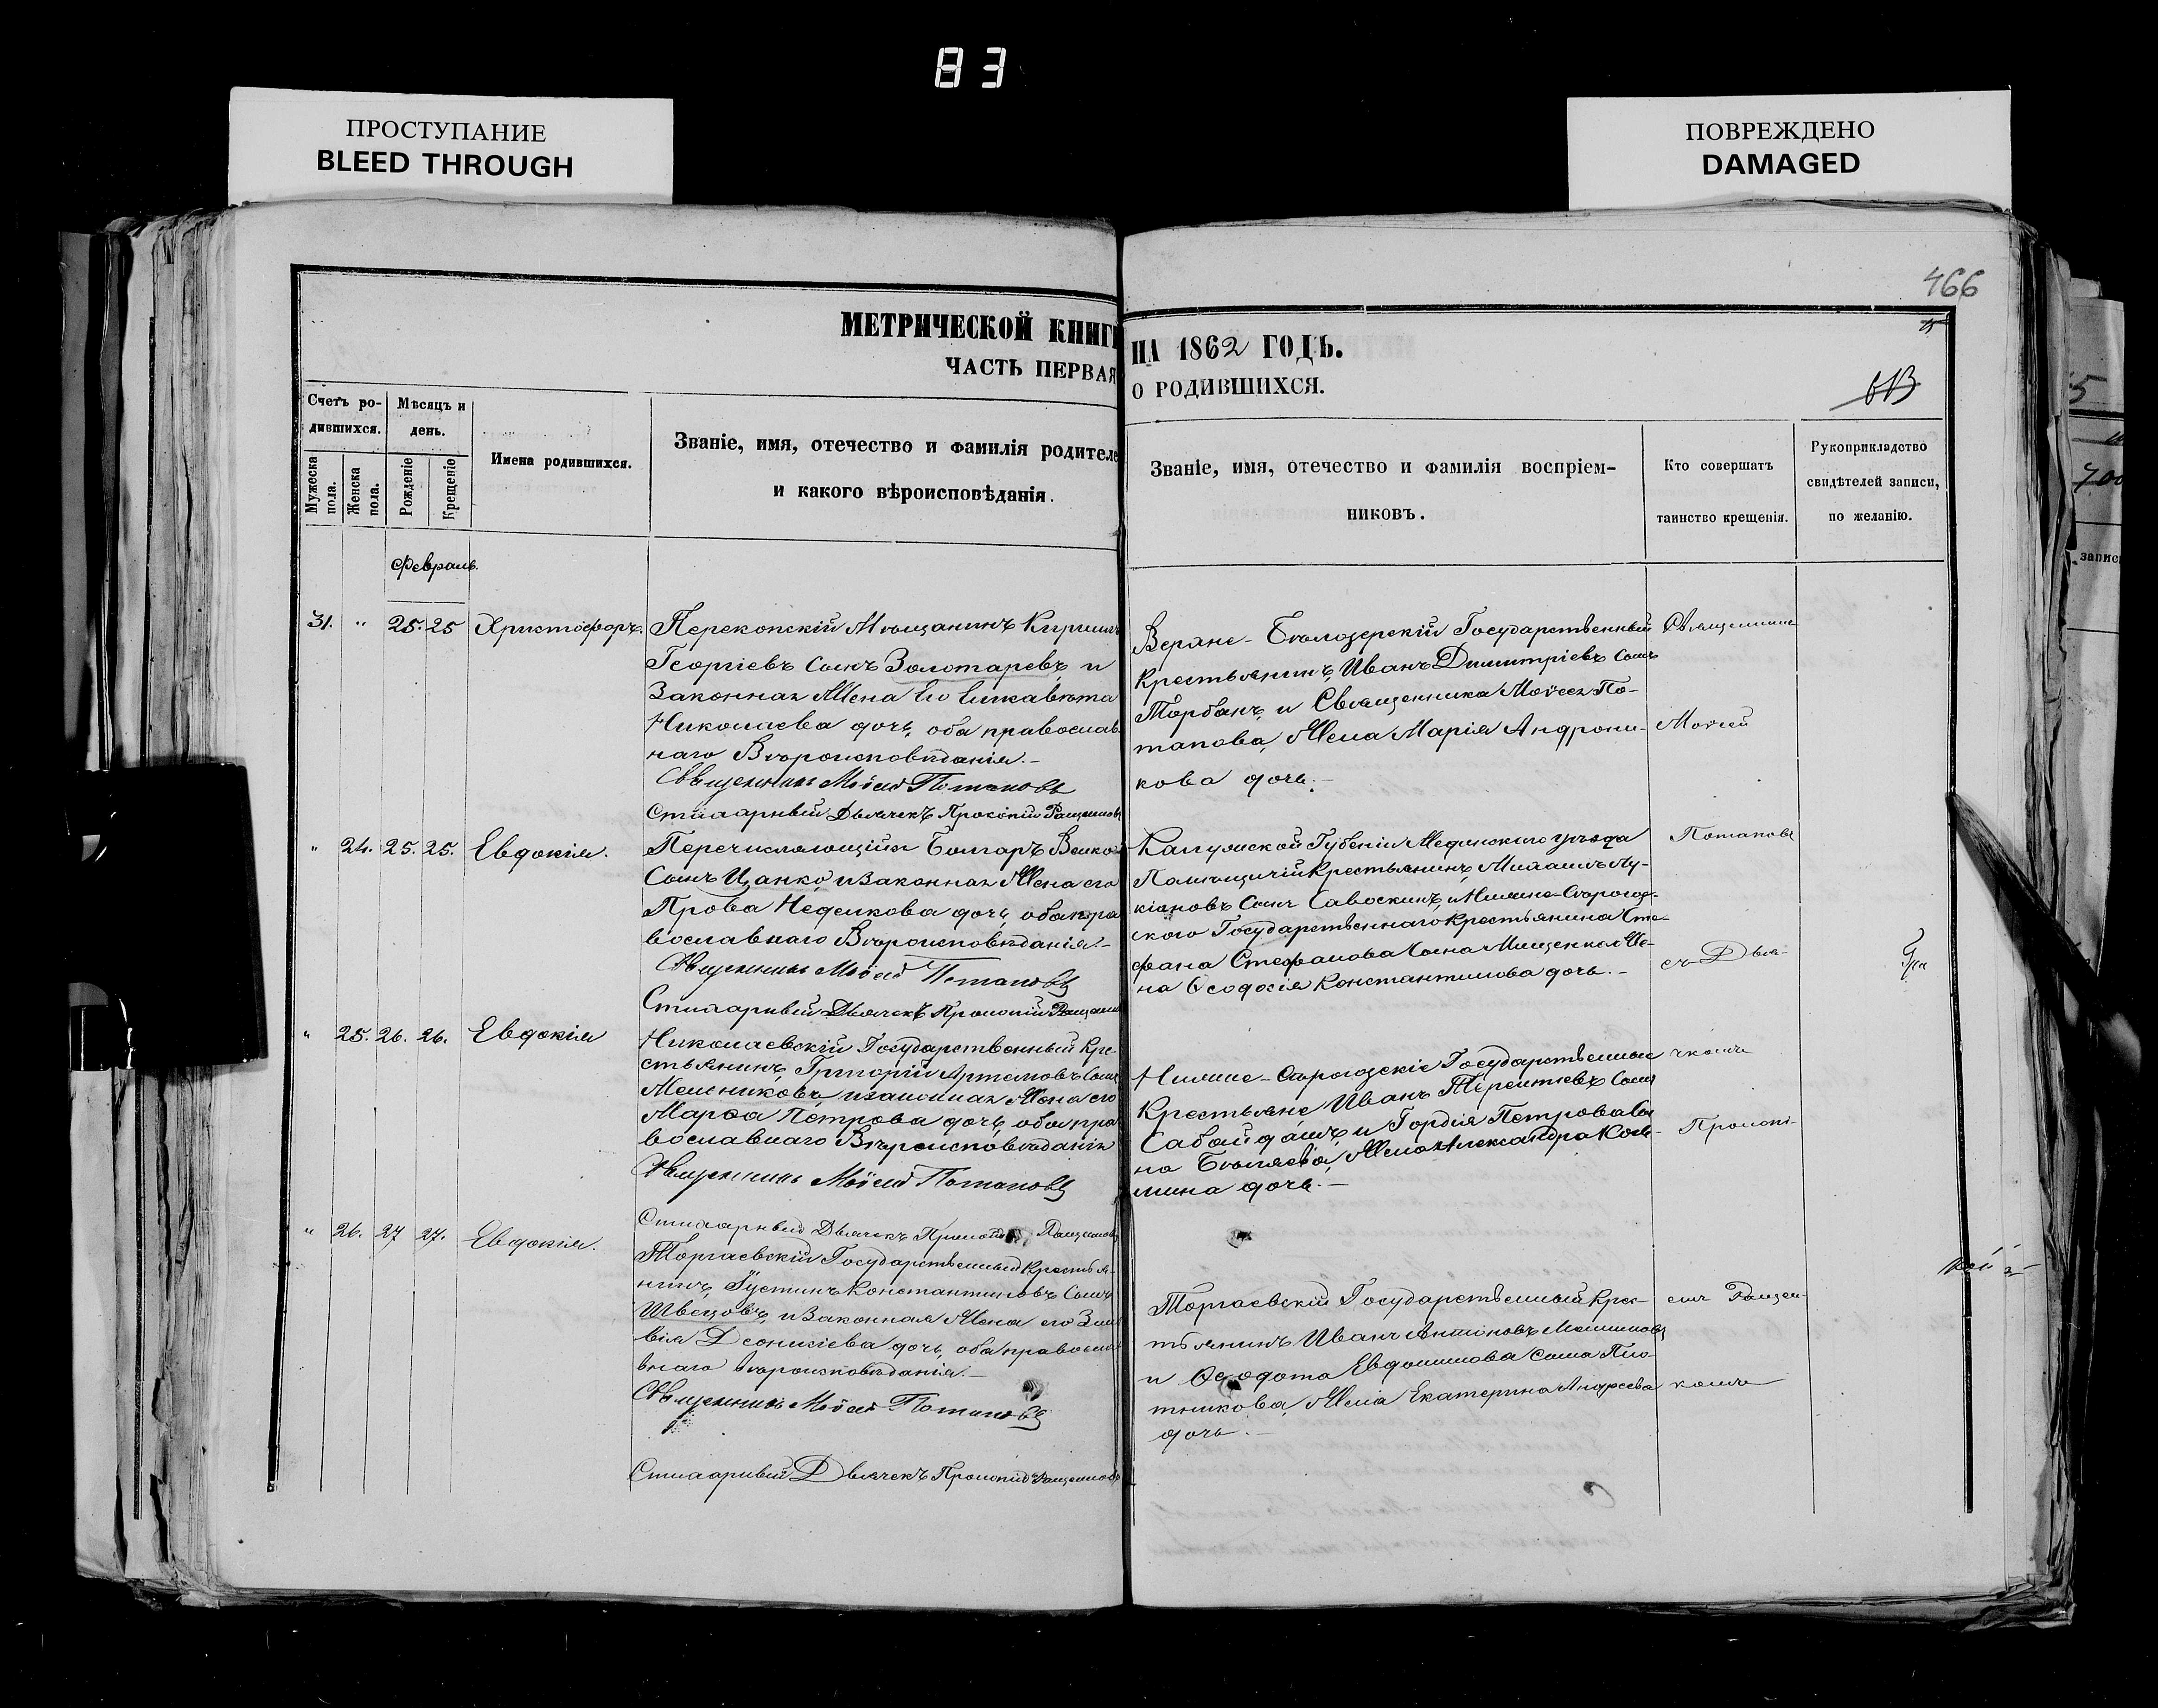 83
ПРОСТУПАНИЕ
BLEED THROUGH
ПОВРЕЖДЕНО
DAMAGED
466
МЕТРИЧЕСКОЙ КНИГИ
НА 1862 ГОДЪ.
ЧАСТЬ ПЕРВАЯ
О РОДИВШИХСЯ.
Счетъ ро-
дившихся.
Мужеска
пола.
Женска
пола.
Мѣсяцъ и
день.
Рожденіе
Крещеніе
Имена родившихся.
Званіе, имя, отечество и фамилія родителе
и какого вѣроисповѣданія.
Званіе, имя, отечество и фамилія воспріем-
никовъ.
Кто совершатъ
таинство крещенія.
Рукоприкладство
свидѣтелей записи,
по желанію.
Февраль.
31. " 25. 25 Христофоръ.
Перекопскій Мѣщанинъ
Георгіевъ сынъ Золотаревъ, и
Законная Жена Его Елисавета
Николаева дочь, оба православ
наго Вѣроисповѣданія.-
Священникъ Моѵсей Потаповъ
Стихарный Дьячекъ Прокопій
Верхне-Бѣлозерскій Государственный
Крестьянинъ, Иванъ Димитріевъ сынъ
Торбанъ, и Священника Моѵсея По-
тапова, Жена Марія Андрони-
кова дочь.-
Священникъ
Моѵсей
Потаповъ
съ Дья-
чкомъ
Прокопі-
емъ
комъ
" 24. 25. 25. Евдокія.
Перечисляющійся Болгаръ Велко
Сынъ Цанко, и Законная Жена его
Прова Неделкова дочь, оба пра
вославнаго Вѣроисповѣданія.-
Священникъ Моѵсей Потаповъ
Стихарный Дьячекъ Прокопій
Калужской Губерніи Медынского уѣзда
Помѣщичій Крестьянинъ,
кіановъ Сынъ Савоскинъ, и Нижне-Сѣрогоз-
ского Государственнаго Крестьянина Сте-
фана Стефанова Сына Мищенка Же-
на Ѳеодосія Константинова дочь.-
" 25. 26. 26. Евдокія
Николаевскій Государственный Кре-
стьянинъ, Григорій Артемовъ Сынъ
Мельниковъ, и законная Жена его
Марѳа Петрова дочь, оба пра
вославнаго Вѣроисповѣданія
Священникъ Моѵсей Потаповъ
Стихарный Дьячекъ Прокопій
Нижне-Сѣрогозскіе Государственные
Крестьяне Иванъ Терентіевъ Сынъ
и Гордія Петрова Сы
на Бѣляева, Жена Александра Козь-
мина дочь.-
" 26. 27 27. Евдокія.
Торгаевскій Государственный Крестья-
нинъ, Іустинъ Константиновъ Сынъ
Швецовъ, и Законная Жена его
вія Деонисіева дочь, оба правосла
внаго Вѣроисповѣданія.-
Священникъ Моѵсей Потаповъ
Стихарный Дьячекъ Прокопій
Торгаевскій Государственный Крес-
тьянинъ Иванъ Антоновъ
и Ѳеодота Евдокимова Сына Пло-
тникова, Жена Екатерина Андреева
дочь.-
запис